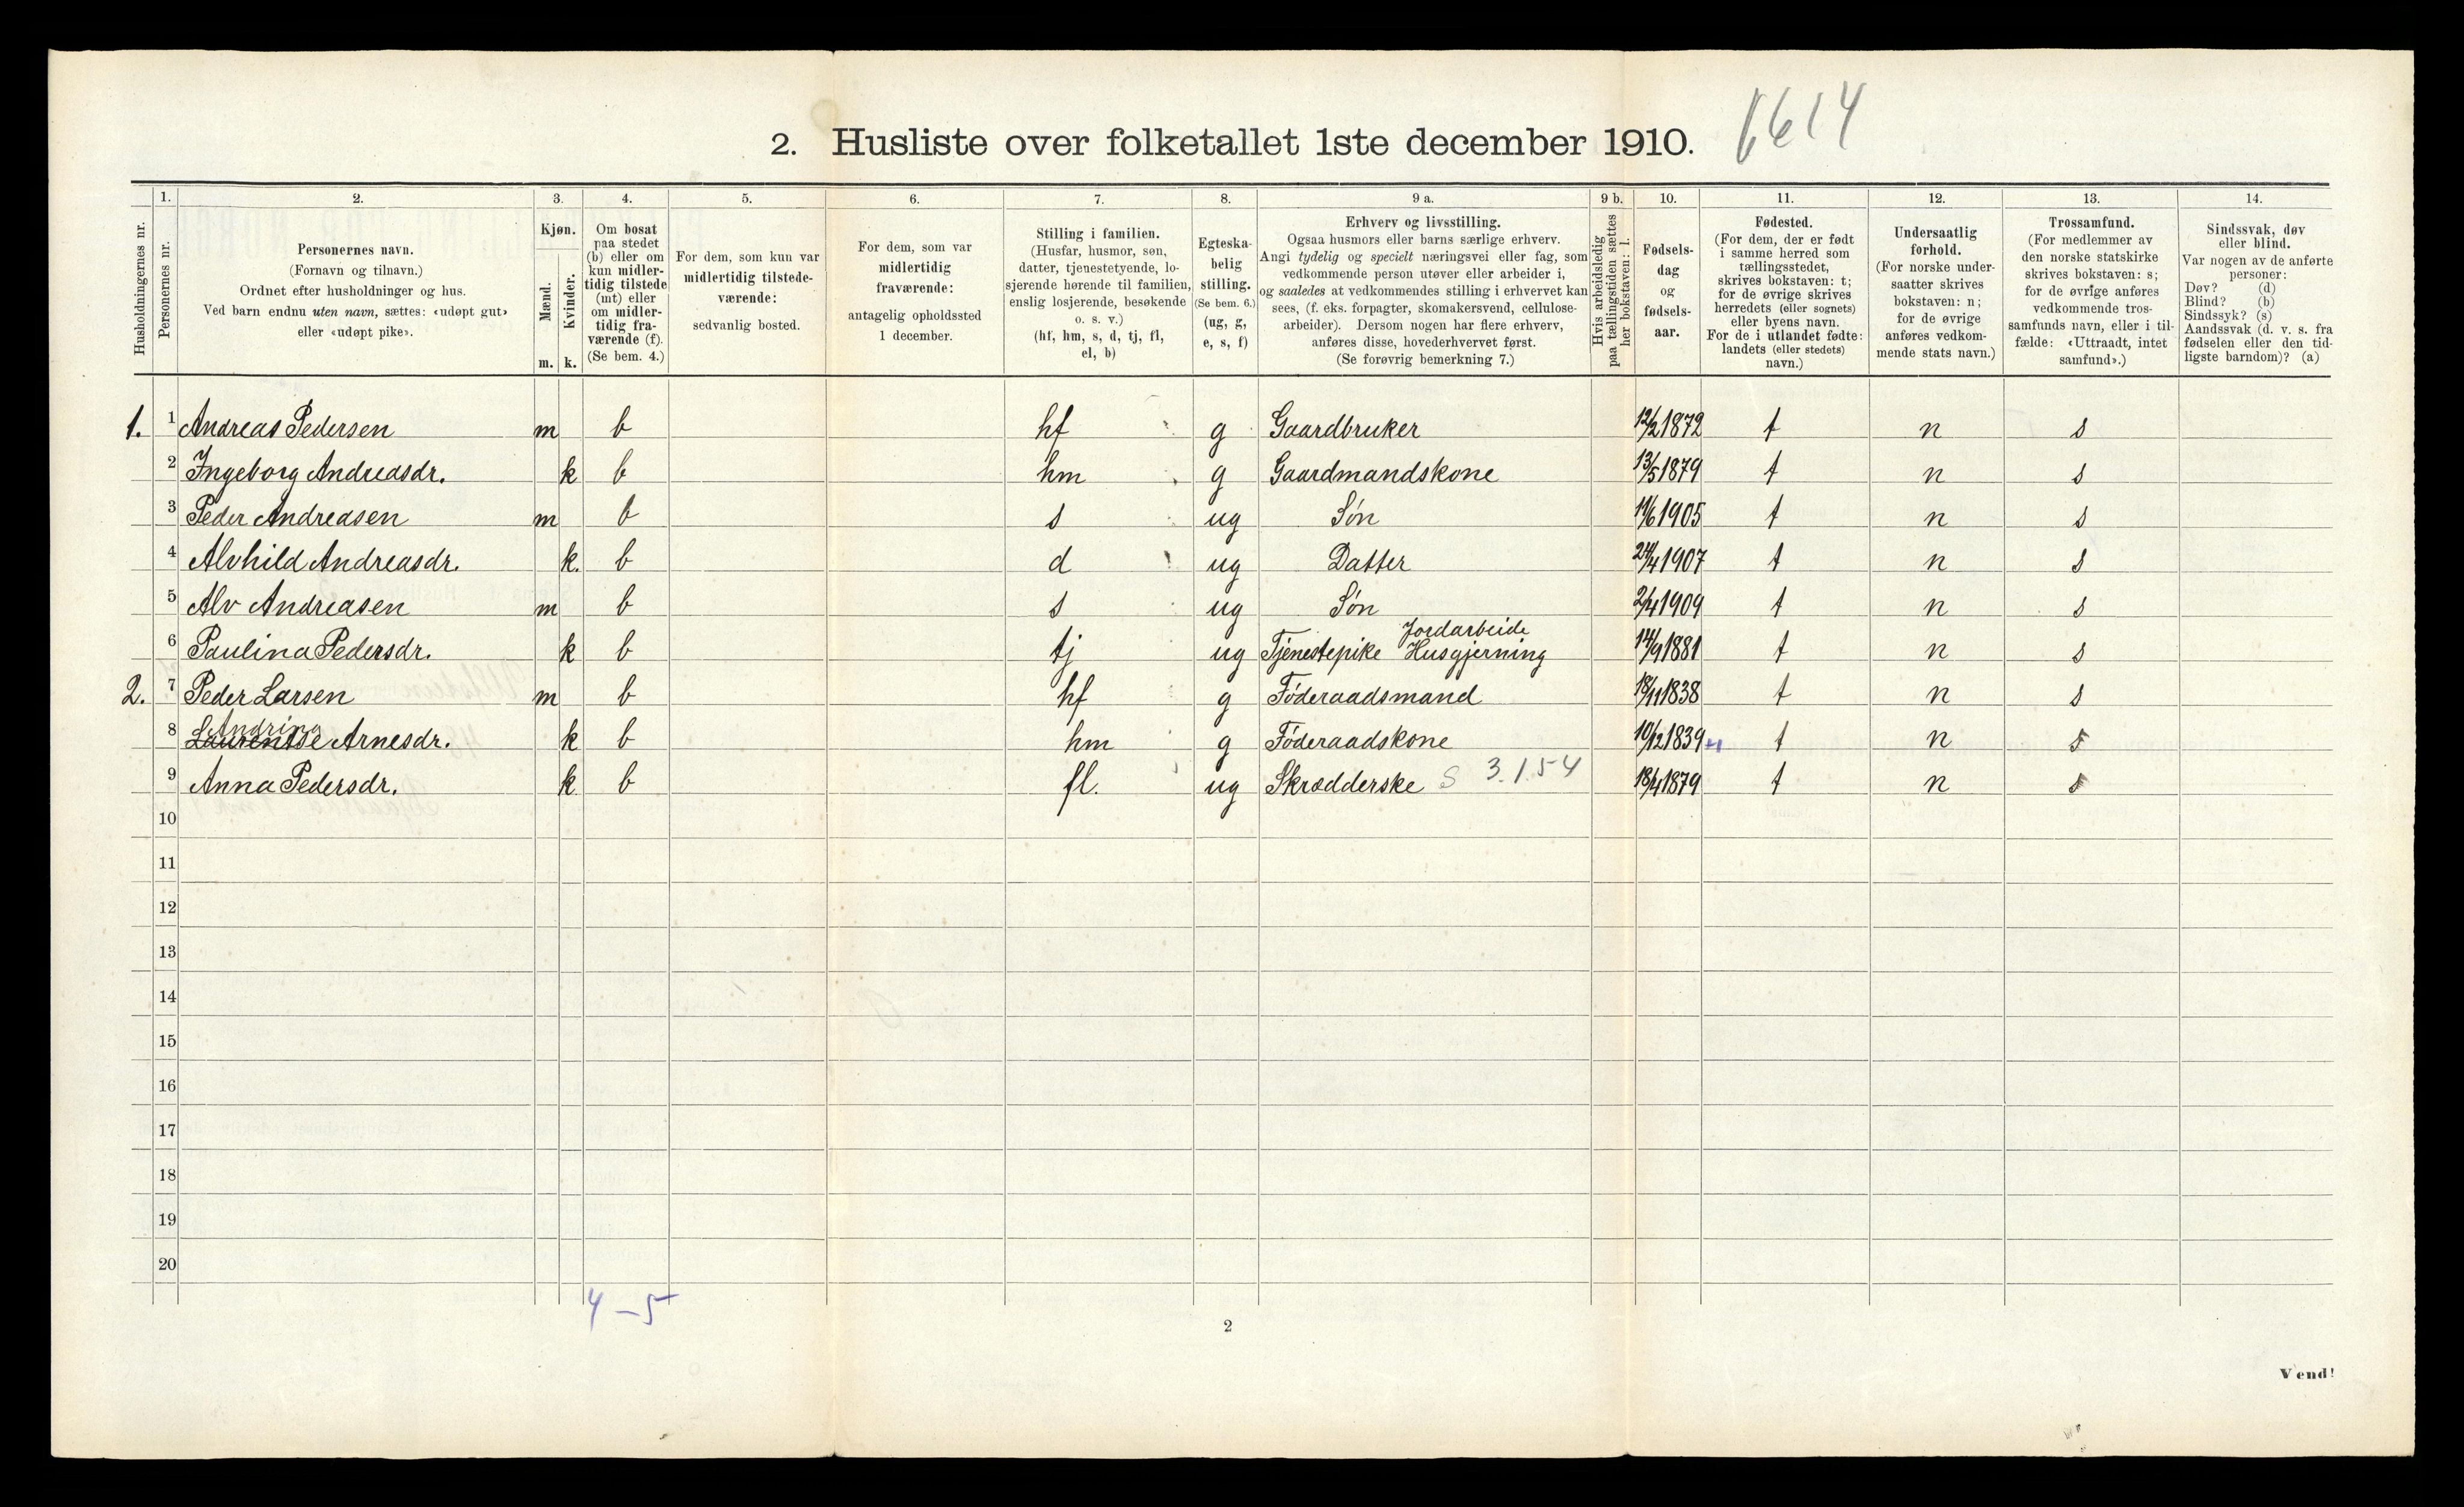 2. Husliste over folketallet 1ste december 1910. 6614
Husholdningernes nr.
1. Personernes nr.
2. Personernes navn. (Fornavn og tilnavn.) Ordnet efter husholdninger og hus. Ved barn endnu uten navn, sættes: «udøpt gut» eller «udøpt pike».
3. Kjøn. Mænd. m. Kvinder. k.
4. Om bosat paa stedet (b) eller om kun midlertidig tilstede (mt) eller om midlertidig fraværende (f). (Se bem. 4.)
5. For dem, som kun var midlertidig tilstedeværende: sedvanlig bosted.
6. For dem, som var midlertidig fraværende: antagelig opholdssted 1 december.
7. Stilling i familien. (Husfar, husmor, søn, datter, tjenestetyende, losjerende hørende til familien, enslig losjerende, besøkende o. s. v.) (hf, hm, s, d, tj, fl, el, b)
8. Egteskabelig stilling. (Se bem. 6.) (ug, g, e, s, f)
9 a. Erhverv og livsstilling. Ogsaa husmors eller barns særlige erhverv. Angi tydelig og specielt næringsvei eller fag, som vedkommende person utøver eller arbeider i, og saaledes at vedkommendes stilling i erhvervet kan sees, (f. eks. forpagter, skomakersvend, cellulosearbeider). Dersom nogen har flere erhverv, anføres disse, hovederhvervet først. (Se forøvrig bemerkning 7.)
9 b. Hvis arbeidsledig paa tællingstiden sættes her bokstaven: l.
10. Fødselsdag og fødselsaar.
11. Fødested. (For dem, der er født i samme herred som tællingsstedet, skrives bokstaven: t; for de øvrige skrives herredets (eller sognets) eller byens navn. For de i utlandet fødte: landets (eller stedets) navn.)
12. Undersaatlig forhold. (For norske undersaatter skrives bokstaven: n; for de øvrige anføres vedkommende stats navn.)
13. Trossamfund. (For medlemmer av den norske statskirke skrives bokstaven: s; for de øvrige anføres vedkommende trossamfunds navn, eller i tilfælde: «Uttraadt, intet samfund».)
14. Sindssvak, døv eller blind. Var nogen av de anførte personer: Døv? (d) Blind? (b) Sindssyk? (s) Aandssvak (d. v. s. fra fødselen eller den tidligste barndom)? (a)
1. 1 Andreas Pedersen m b hf g Gaardbruker 12/2 1872 t n s
2 Ingeborg Andreasdr. k b hm g Gaardmandskone 13/5 1879 t n s
3 Peder Andreasen m b s ug Søn 11/6 1905 t n s
4 Alvhild Andreasdr. k. b d ug Datter 24/4 1907 t n s
5 Alv Andreasen m b s ug Søn 2/4 1909 t n s
6 Paulina Pedersdr. k b tj ug Tjenestepike Jordarbeide Husgjerning 14/9 1881 t n s
2. 7 Peder Larsen m b hf g Føderaadsmand 18/11 1838 t n s
8 Laurentse Andrina Arnesdr. k b hm g Føderaadskone 10/12 1839 t n s
9 Anna Pedersdr. k b fl. ug Skrædderske S 3.1.54 18/4 1879 t n s
10
11
12
13
14
15
16
17
18
19
20
4 – 5
2
Vend!